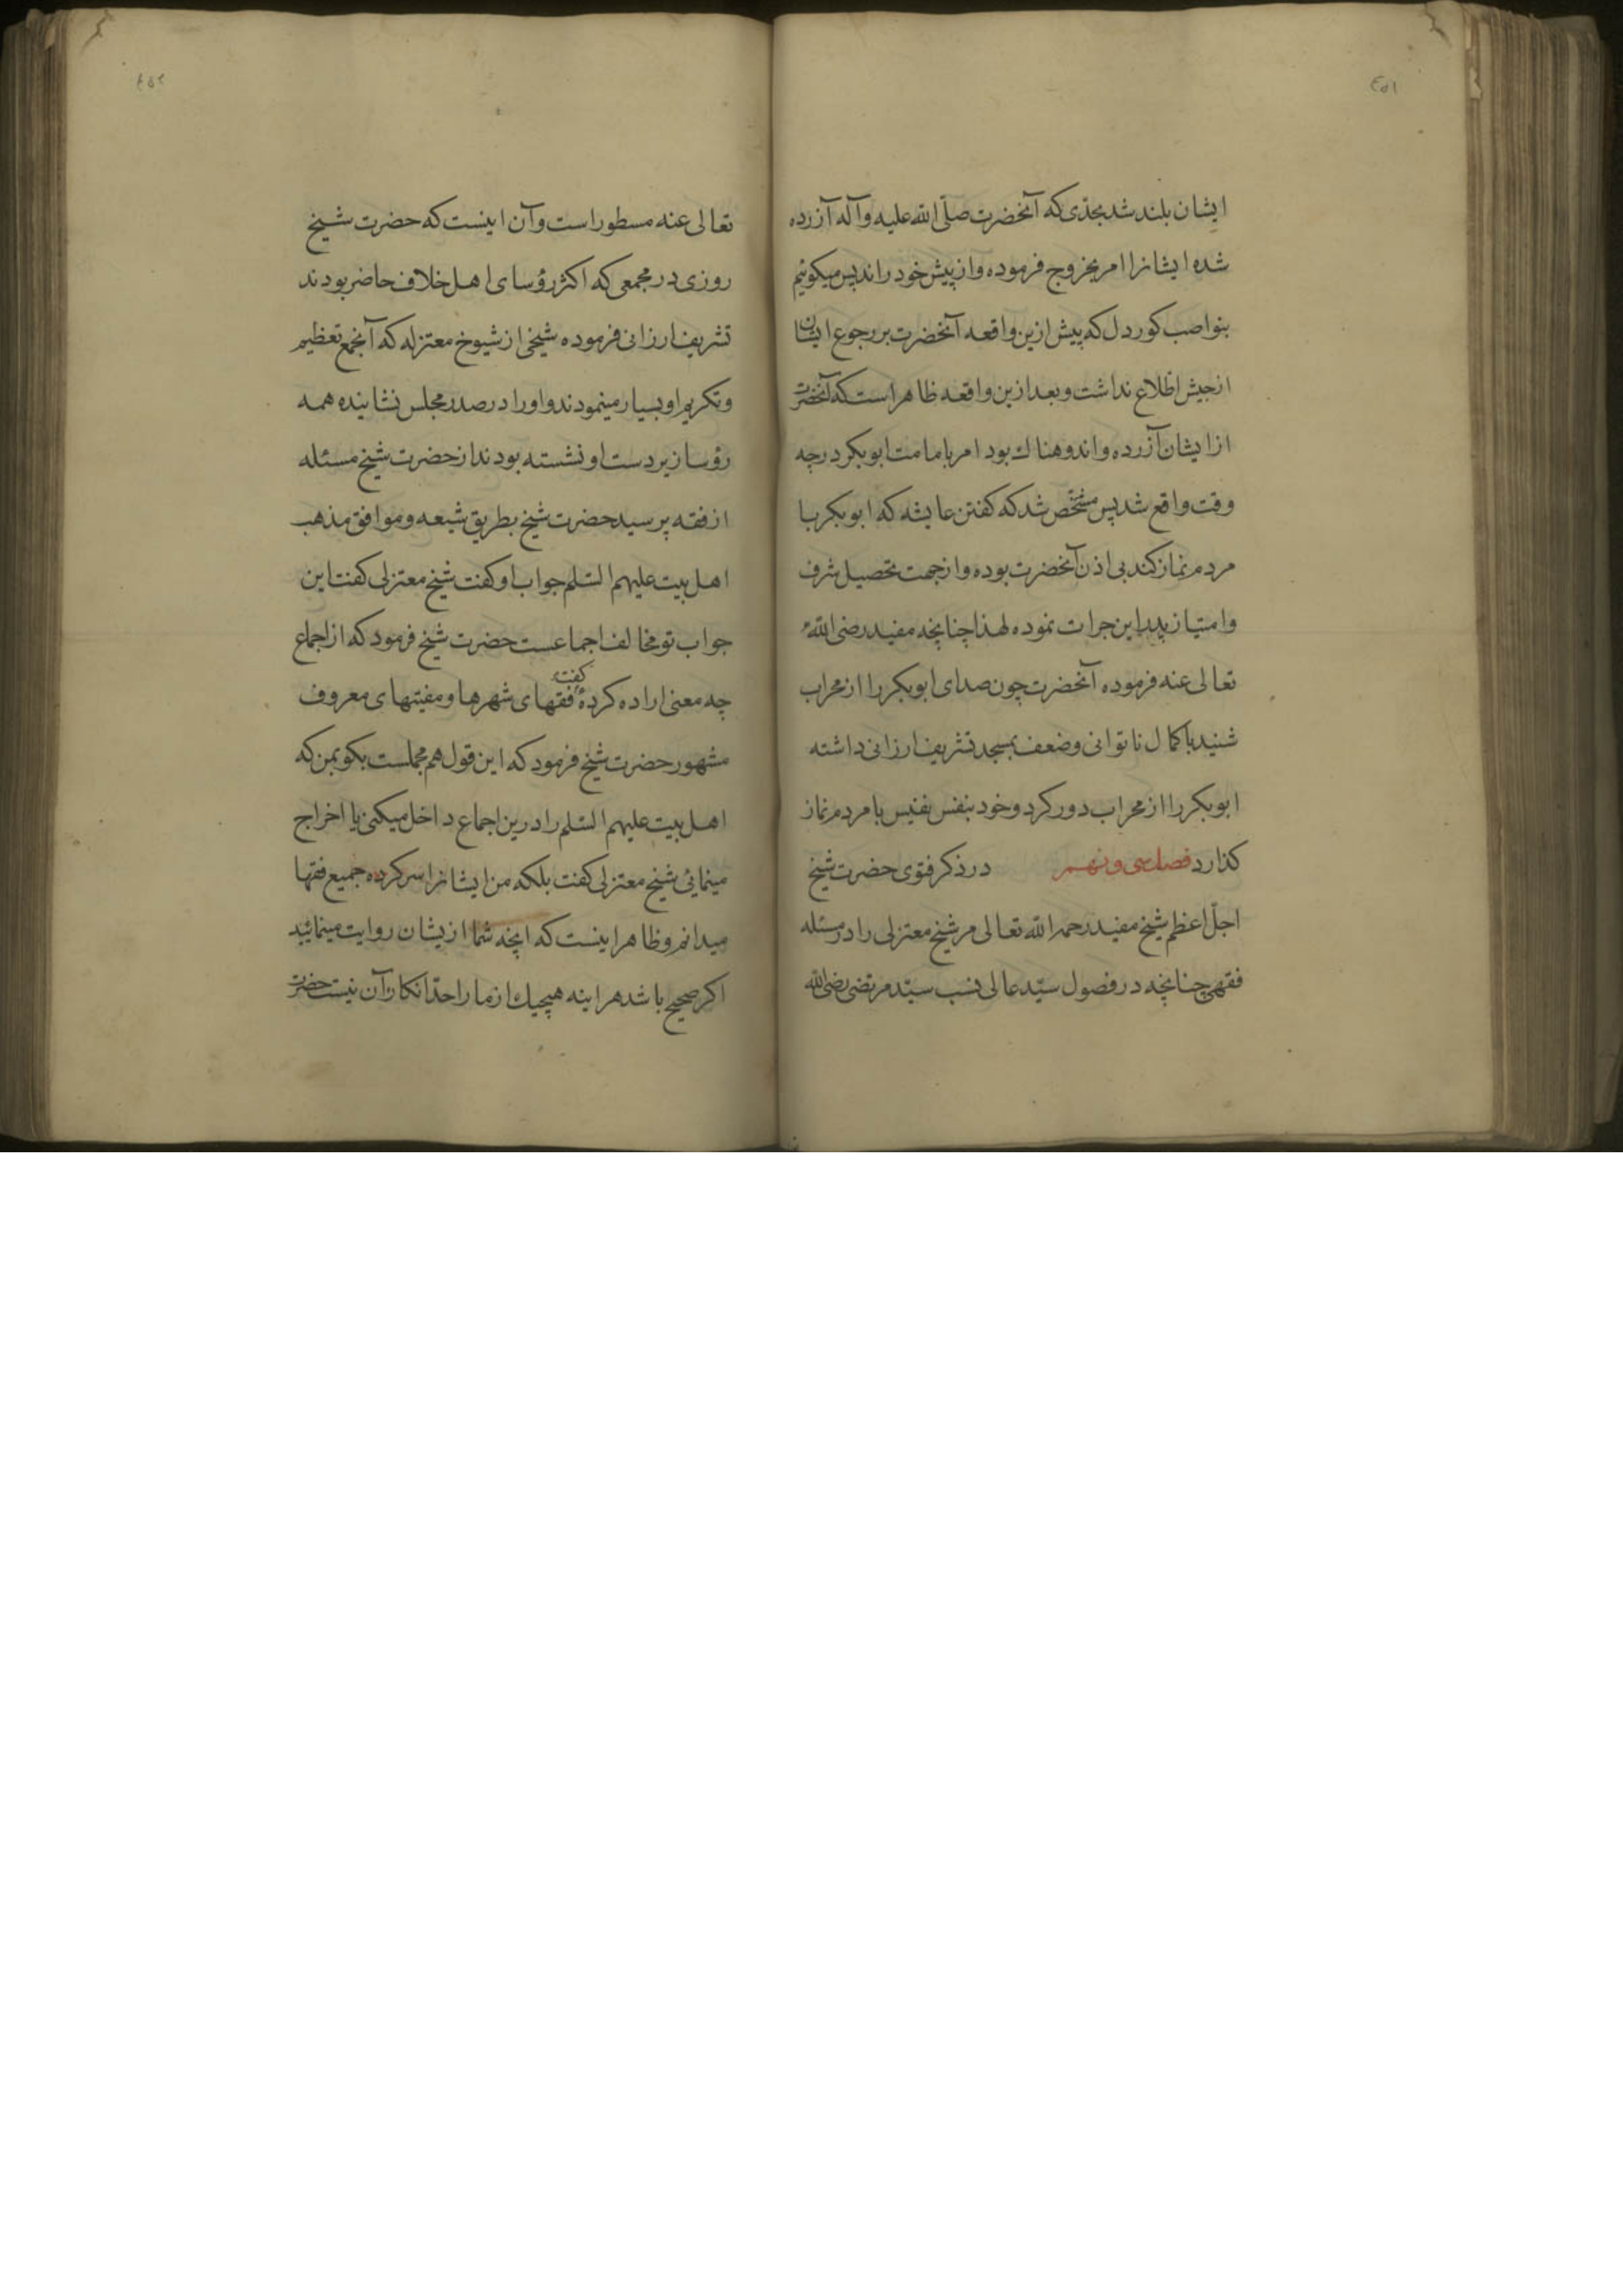 ٤٥١
ایشان بلند شد بحدّی که آنحضرت صلّی الله علیه وآله آزرده
شده ایشانرا امر بخروج فرموده واز پیش خود راند پس میکوئیم
بنواصب کوردل که پیش ازین واقعه آنحضرت بر رجوع ایشان
ازجیش اطلاع نداشت وبعد ازین واقعه ظاهراست که آنحضرت
ازایشان آزرده واندوهناك بود امر بامامت ابوبکر درچه
وقت واقع شد پس مشخّص شد که کفتن عایشه که ابوبکر با
مردم نماز کند بی اذن آنحضرت بوده وازجهت تحصیل شرف
وامتیاز پدر این جرات نموده لهذا چنانچه مفید رضی الله
تعالی عنه فرموده آنحضرت چون صدای ابوبکر را از محراب
شنید باکمال ناتوانی وضعف بمسجد تشریف ارزانی داشته
ابوبکر را از محراب دور کرد وخود بنفس نفیس با مردم نماز
کذارد فصل سی ونهم در ذکر فتوی حضرت شیخ
اجلّ اعظم شیخ مفید رحمه الله تعالی مر شیخ معتزلی را در مسئله
فقهی چنانچه در فصول سیّد عالی نسب سیّد مرتضی رضی الله
٤٥٢
تعالی عنه مسطوراست وآن اینست که حضرت شیخ
روزی در مجمعی که اکثر رؤسای اهل خلاف حاضر بودند
تشریف ارزانی فرموده شیخی از شیوخ معتزله که آنجمع تعظیم
وتکریم او بسیار مینمودند واورا درصدر مجلس نشانیده همه
رؤسا زیردست او نشسته بودند از حضرت شیخ مسئله
از فقه پرسید حضرت شیخ بطریق شیعه وموافق مذهب
اهل بیت علیهم السّلم جواب او کفت شیخ معتزلی کفت این
جواب تو مخالف اجماعست حضرت شیخ فرمود که از اجماع
چه معنی اراده کردهٔ کفت فقهای شهرها ومفیتهای معروف
مشهور حضرت شیخ فرمود که این قول هم مجملست بکو بمن که
اهل بیت علیهم السّلم را درین اجماع داخل میکنی یا اخراج
مینمائی شیخ معتزلی کفت بلکه من ایشانرا سرکرده جمیع فقها
میدانم وظاهر اینست که انچه شما ازیشان روایت مینمائید
اکر صحیح باشد هراینه هیچیك از ما را حدّ انکار آن نیست حضرت